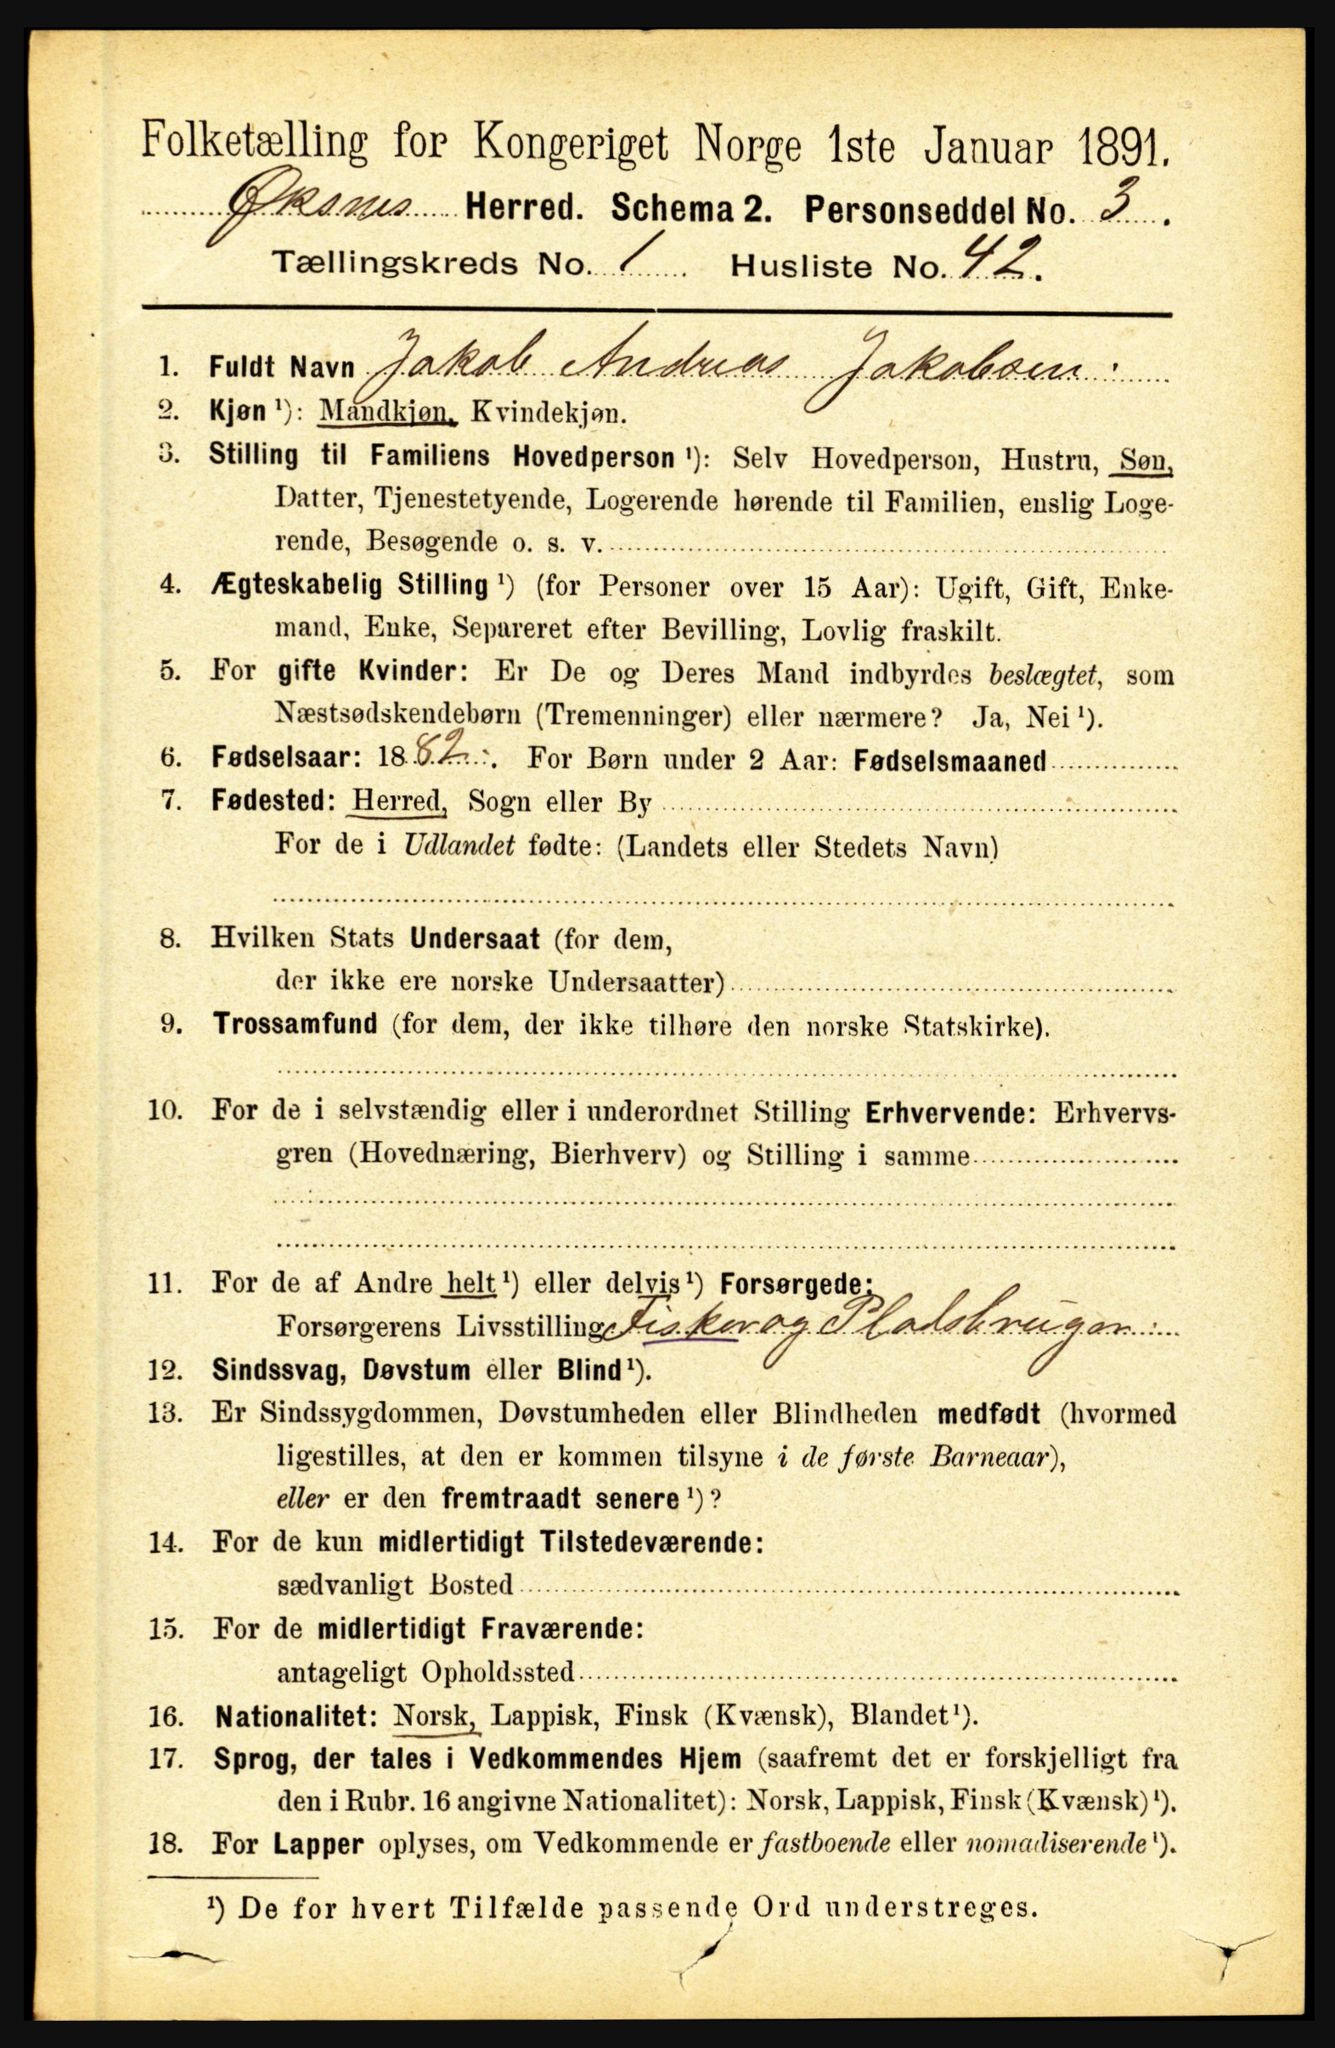 Folketælling for Kongeriget Norge 1ste Januar 1891.
Øksnes Herred. Schema 2. Personseddel No. 3.
Tællingskreds No. 1 Husliste No. 42.
1. Fuldt Navn Jakob Andreas Jakobsen:
2. Kjøn ¹): Mandkjøn, Kvindekjøn.
3. Stilling til Familiens Hovedperson ¹): Selv Hovedperson, Hustru, Søn,
Datter, Tjenestetyende, Logerende hørende til Familien, enslig Loge-
rende, Besøgende o. s. v.
4. Ægteskabelig Stilling ¹) (for Personer over 15 Aar): Ugift, Gift, Enke-
mand, Enke, Separeret efter Bevilling, Lovlig fraskilt.
5. For gifte Kvinder: Er De og Deres Mand indbyrdes beslægtet, som
Næstsødskendebørn (Tremenninger) eller nærmere? Ja, Nei ¹).
6. Fødselsaar: 1882:. For Børn under 2 Aar: Fødselsmaaned
7. Fødested: Herred, Sogn eller By
For de i Udlandet fødte: (Landets eller Stedets Navn)
8. Hvilken Stats Undersaat (for dem,
der ikke ere norske Undersaatter)
9. Trossamfund (for dem, der ikke tilhøre den norske Statskirke).
10. For de i selvstændig eller i underordnet Stilling Erhvervende: Erhvervs-
gren (Hovednæring, Bierhverv) og Stilling i samme
11. For de af Andre helt ¹) eller delvis ¹) Forsørgede:
Forsørgerens Livsstilling Fisker og Pladsbruger:
12. Sindssvag, Døvstum eller Blind ¹).
13. Er Sindssygdommen, Døvstumheden eller Blindheden medfødt (hvormed
ligestilles, at den er kommen tilsyne i de første Barneaar),
eller er den fremtraadt senere ¹)?
14. For de kun midlertidigt Tilstedeværende:
sædvanligt Bosted
15. For de midlertidigt Fraværende:
antageligt Opholdssted
16. Nationalitet: Norsk, Lappisk, Finsk (Kvænsk), Blandet ¹).
17. Sprog, der tales i Vedkommendes Hjem (saafremt det er forskjelligt fra
den i Rubr. 16 angivne Nationalitet): Norsk, Lappisk, Finsk (Kvænsk) ¹).
18. For Lapper oplyses, om Vedkommende er fastboende eller nomadiserende ¹).
¹) De for hvert Tilfælde passende Ord understreges.